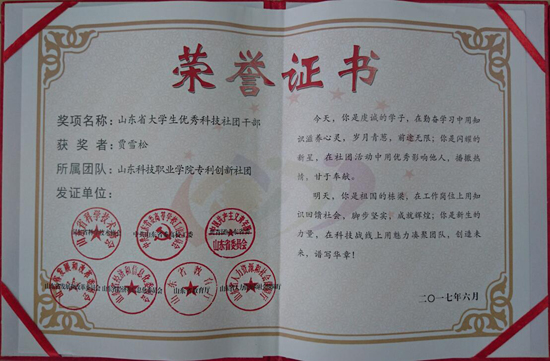 荣誉证书
奖项名称：山东省大学生优秀科技社团干部
获奖者：贾雪松
所属团队：山东科技职业学院专利创新社团
发证单位：
山东省科学技术协会
山东省委员会
山东省教育厅
今天，你是虔诚的学子，在勤奋学习中用知
识滋养心灵，岁月青葱，前途无限；你是闪耀的
新星，在社团活动中用优秀影响他人，播撒热
情，甘于奉献。
明天，你是祖国的栋梁，在工作岗位上用知
识回馈社会，脚步坚实，成就辉煌；你是新生的力
量，在科技战线上用魅力凑聚团队，创造未
来，谱写华章！
二〇一七年六月